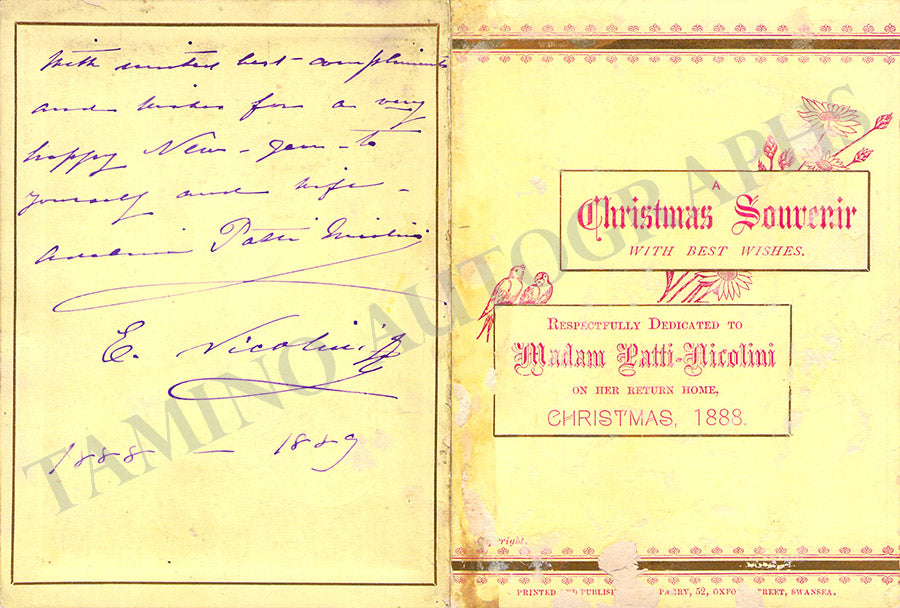 With united best compliments
and wishes for a very
happy New-year-to
yourself and wife-
Adelina Patti Nicolini
E. Nicolini
1888 — 1889
A
Christmas Souvenir
WITH BEST WISHES.
RESPECTFULLY DEDICATED TO
Madam Patti-Nicolini
ON HER RETURN HOME,
CHRISTMAS, 1888.
PRINTED AND PUBLISH PARRY, 52, OXFO STREET, SWANSEA.
TAMINO AUTOGRAPHS